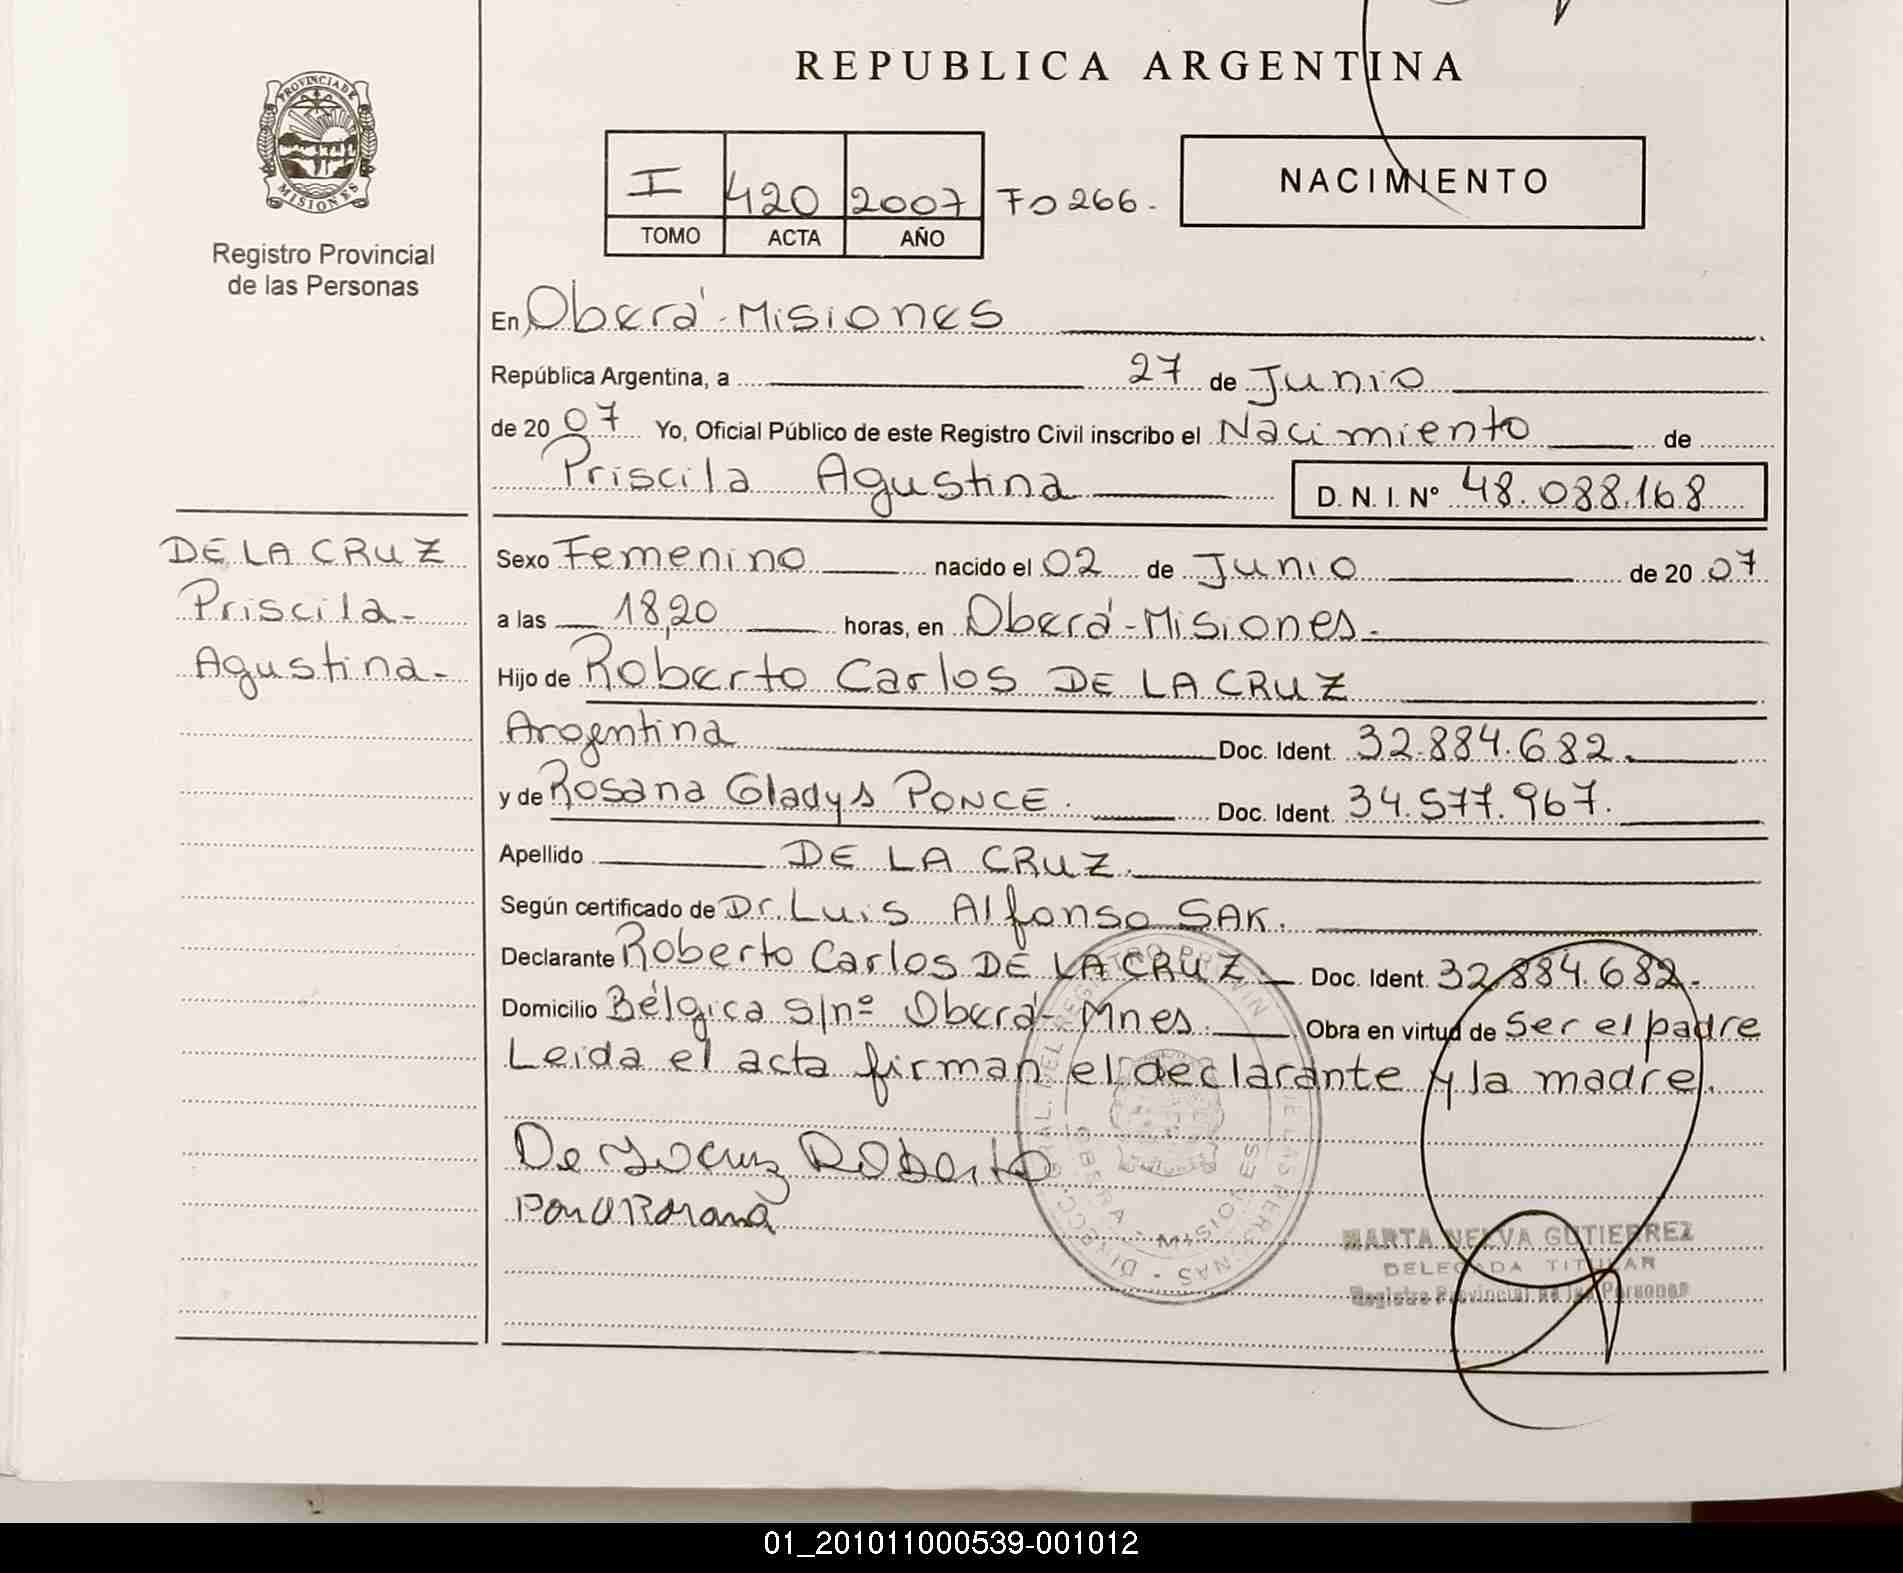 REPUBLICA ARGENTINA
PROVINCIA DE MISIONES
Registro Provincial
de las Personas
I 420 2007 Fo 266.
TOMO ACTA AÑO
NACIMIENTO
En Oberá - Misiones
República Argentina, a 27 de Junio
de 20 07 Yo, Oficial Público de este Registro Civil inscribo el Nacimiento de
Priscila Agustina D. N. I. N° 48.088.168
DE LA CRUZ
Priscila -
Agustina -
Sexo Femenino nacido el 02 de Junio de 20 07
a las 18,20 horas, en Oberá - Misiones.
Hijo de Roberto Carlos DE LA CRUZ
Argentina Doc. Ident. 32.884.682.
y de Rosana Gladys PONCE. Doc. Ident. 34.577.967.
Apellido DE LA CRUZ.
Según certificado de Dr. Luis Alfonso SAK.
Declarante Roberto Carlos DE LA CRUZ. Doc. Ident. 32.884.682.
Domicilio Bélgica s/nº Oberá - Mnes. Obra en virtud de ser el padre
Leida el acta firman el declarante y la madre.
De La Cruz Roberto
MARTA NELVA GUTIERREZ
DELEGADA TITULAR
Registro Provincial de las Personas
OBERA - MISIONES
01_201011000539-001012